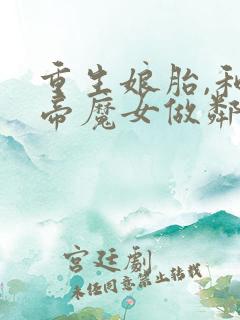 重生娘胎,和
帝魔女做鄰
宮廷劇
未任同意禁止转载